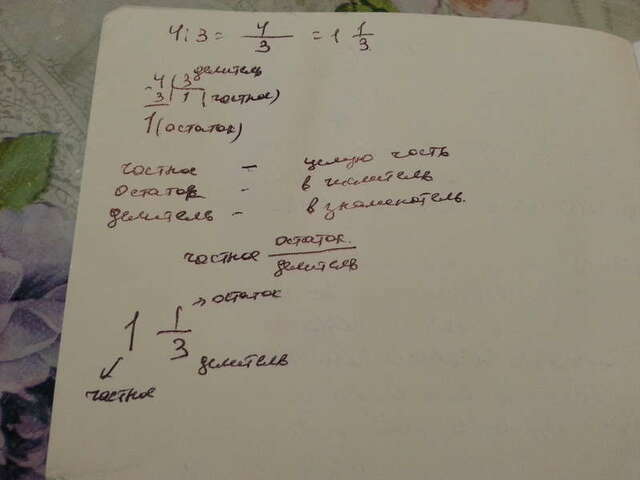 4:3 = 4/3 = 1 1/3
-4 | 3 делитель
3 | 1 (частное)
1 (остаток)
частное - целую часть
остаток - в числитель
делитель - в знаменатель.
частное остаток/делитель
1 1/3 → остаток
делитель
частное